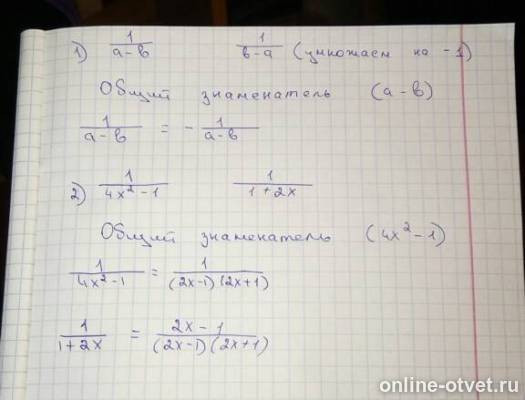 1) 1/(a-b) 1/(b-a) (умножаем на -1)
Общий знаменатель (a-b)
1/(a-b) = - 1/(a-b)
2) 1/(4x²-1) 1/(1+2x)
Общий знаменатель (4x²-1)
1/(4x²-1) = 1/((2x-1)(2x+1))
1/(1+2x) = (2x-1)/((2x-1)(2x+1))
online-otvet.ru